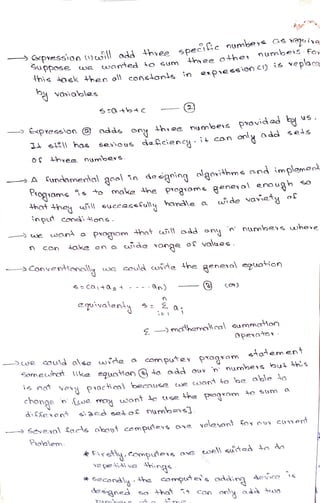 → Expression (1) will add three specific numbers as require
Suppose we wanted to sum three other numbers For
this task then all constants in expression (1) is replace
by variables
s=a+b+c — (2)
→ Expression (2) adds any three numbers provided by us.
It still has serious deficiency. it can only add sets
of three numbers.
→ A fundamental goal in designing algorithms and implement
Programs is to make the programs general enough so
that they will successfully handle a wide variety of
input conditions.
→ we want a program that will add any 'n' numbers where
n can take on a wide range of values.
→ Conventionally we could write the general equation
s = (a1+a2+ - - - - an) — (3) (or)
equivalenty s = n Σ i=1 ai
Σ → mathematical summation
operator.
→ we could also write a computer program statement
somewhat like equation (3) to add our n numbers but this
is not very practical because we want to be able to
change n (we may want to use the program to sum a
different sized set of numbers).
→ Several facts about computers are relevant for our current
Problem.
* Firstly, computers are well suited to do
repetitive things
* Secondly, the computer's adding device is
designed so that it can only add two